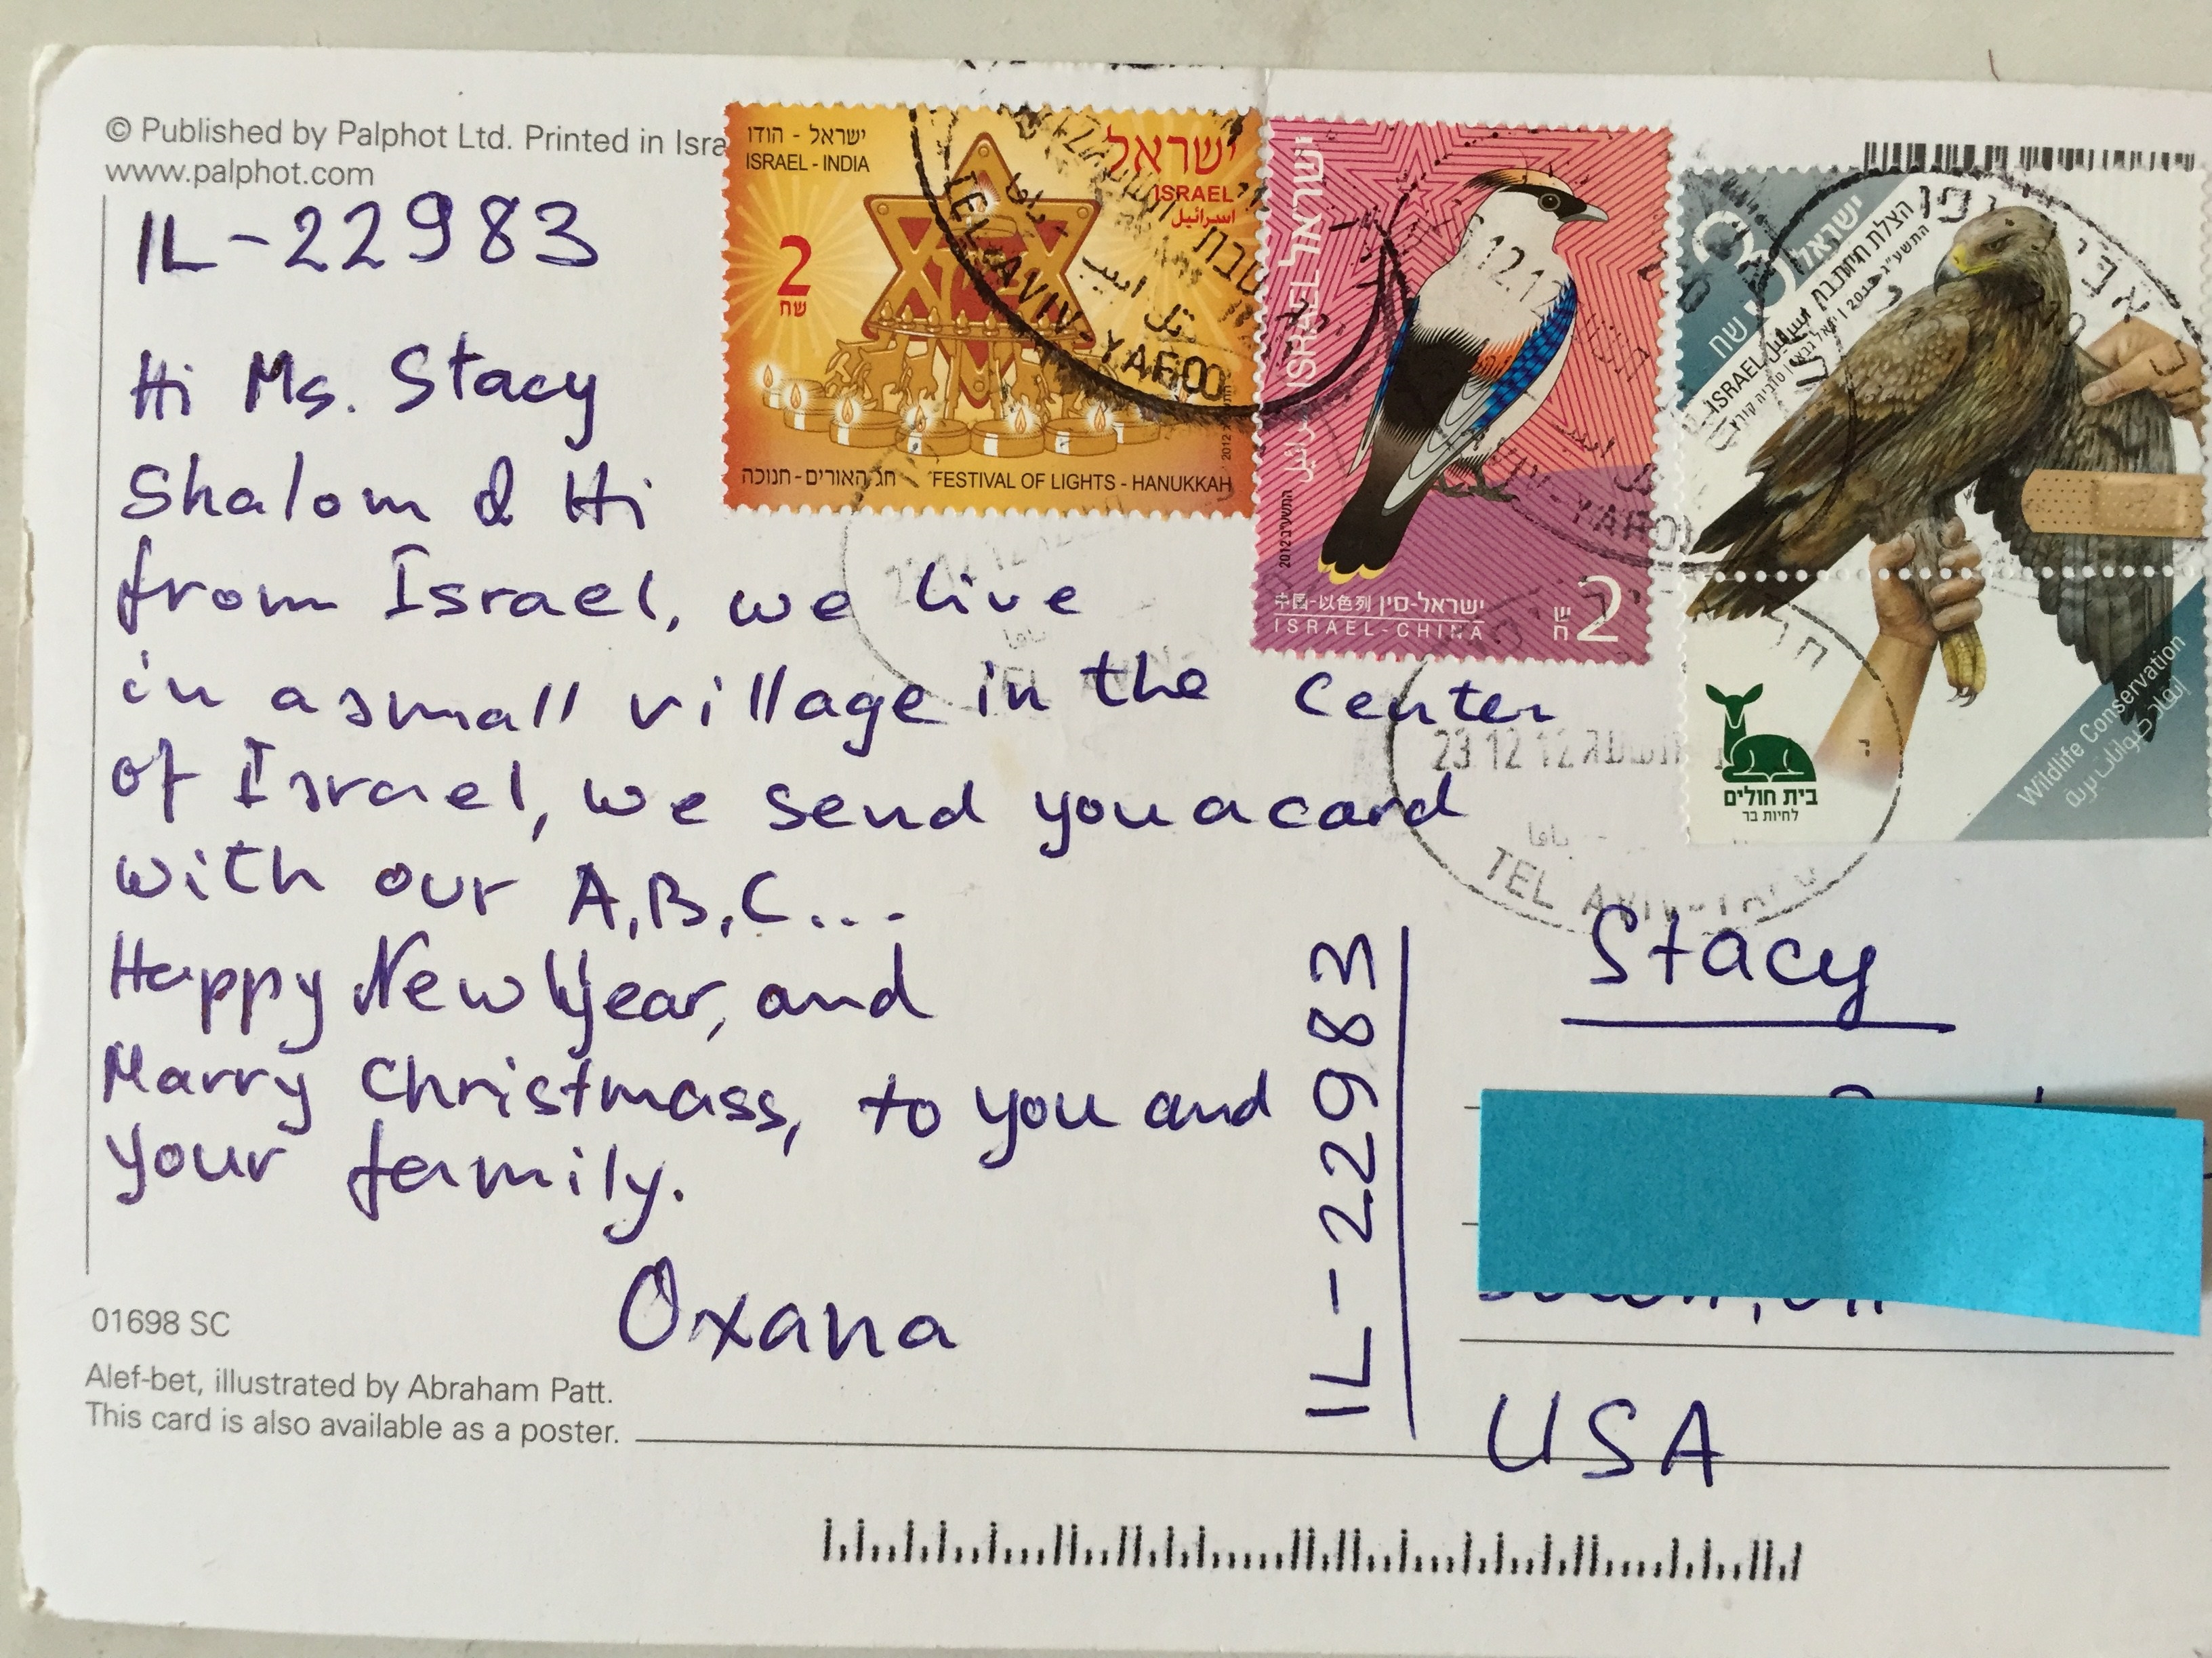 © Published by Palphot Ltd. Printed in Isra
www.palphot.com
IL-22983
Hi Ms. Stacy
Shalom & Hi
from Israel, we live
in a small village in the center
of Israel, we send you a card
with our A,B,C...
Happy New Year, and
Marry Christmass, to you and
your family.
Oxana
01698 SC
Alef-bet, illustrated by Abraham Patt.
This card is also available as a poster.
ישראל - הודו
ISRAEL - INDIA
ישראל
ISRAEL
اسرائيل
2
שח
2012
חג האורים - חנוכה
FESTIVAL OF LIGHTS - HANUKKAH
TEL AVIV-YAFO
تل ابيب
يافا
ישראל ISRAEL
2012
中国-以色列 ישראל-סין
ISRAEL-CHINA
2
שח
12.12
3
ישראל
שח
הצלת חיות בר
ISRAEL
Wildlife Conservation
בית חולים
לחיות בר
23 12 12
TEL AVIV-YAFO
IL-22983
Stacy
USA